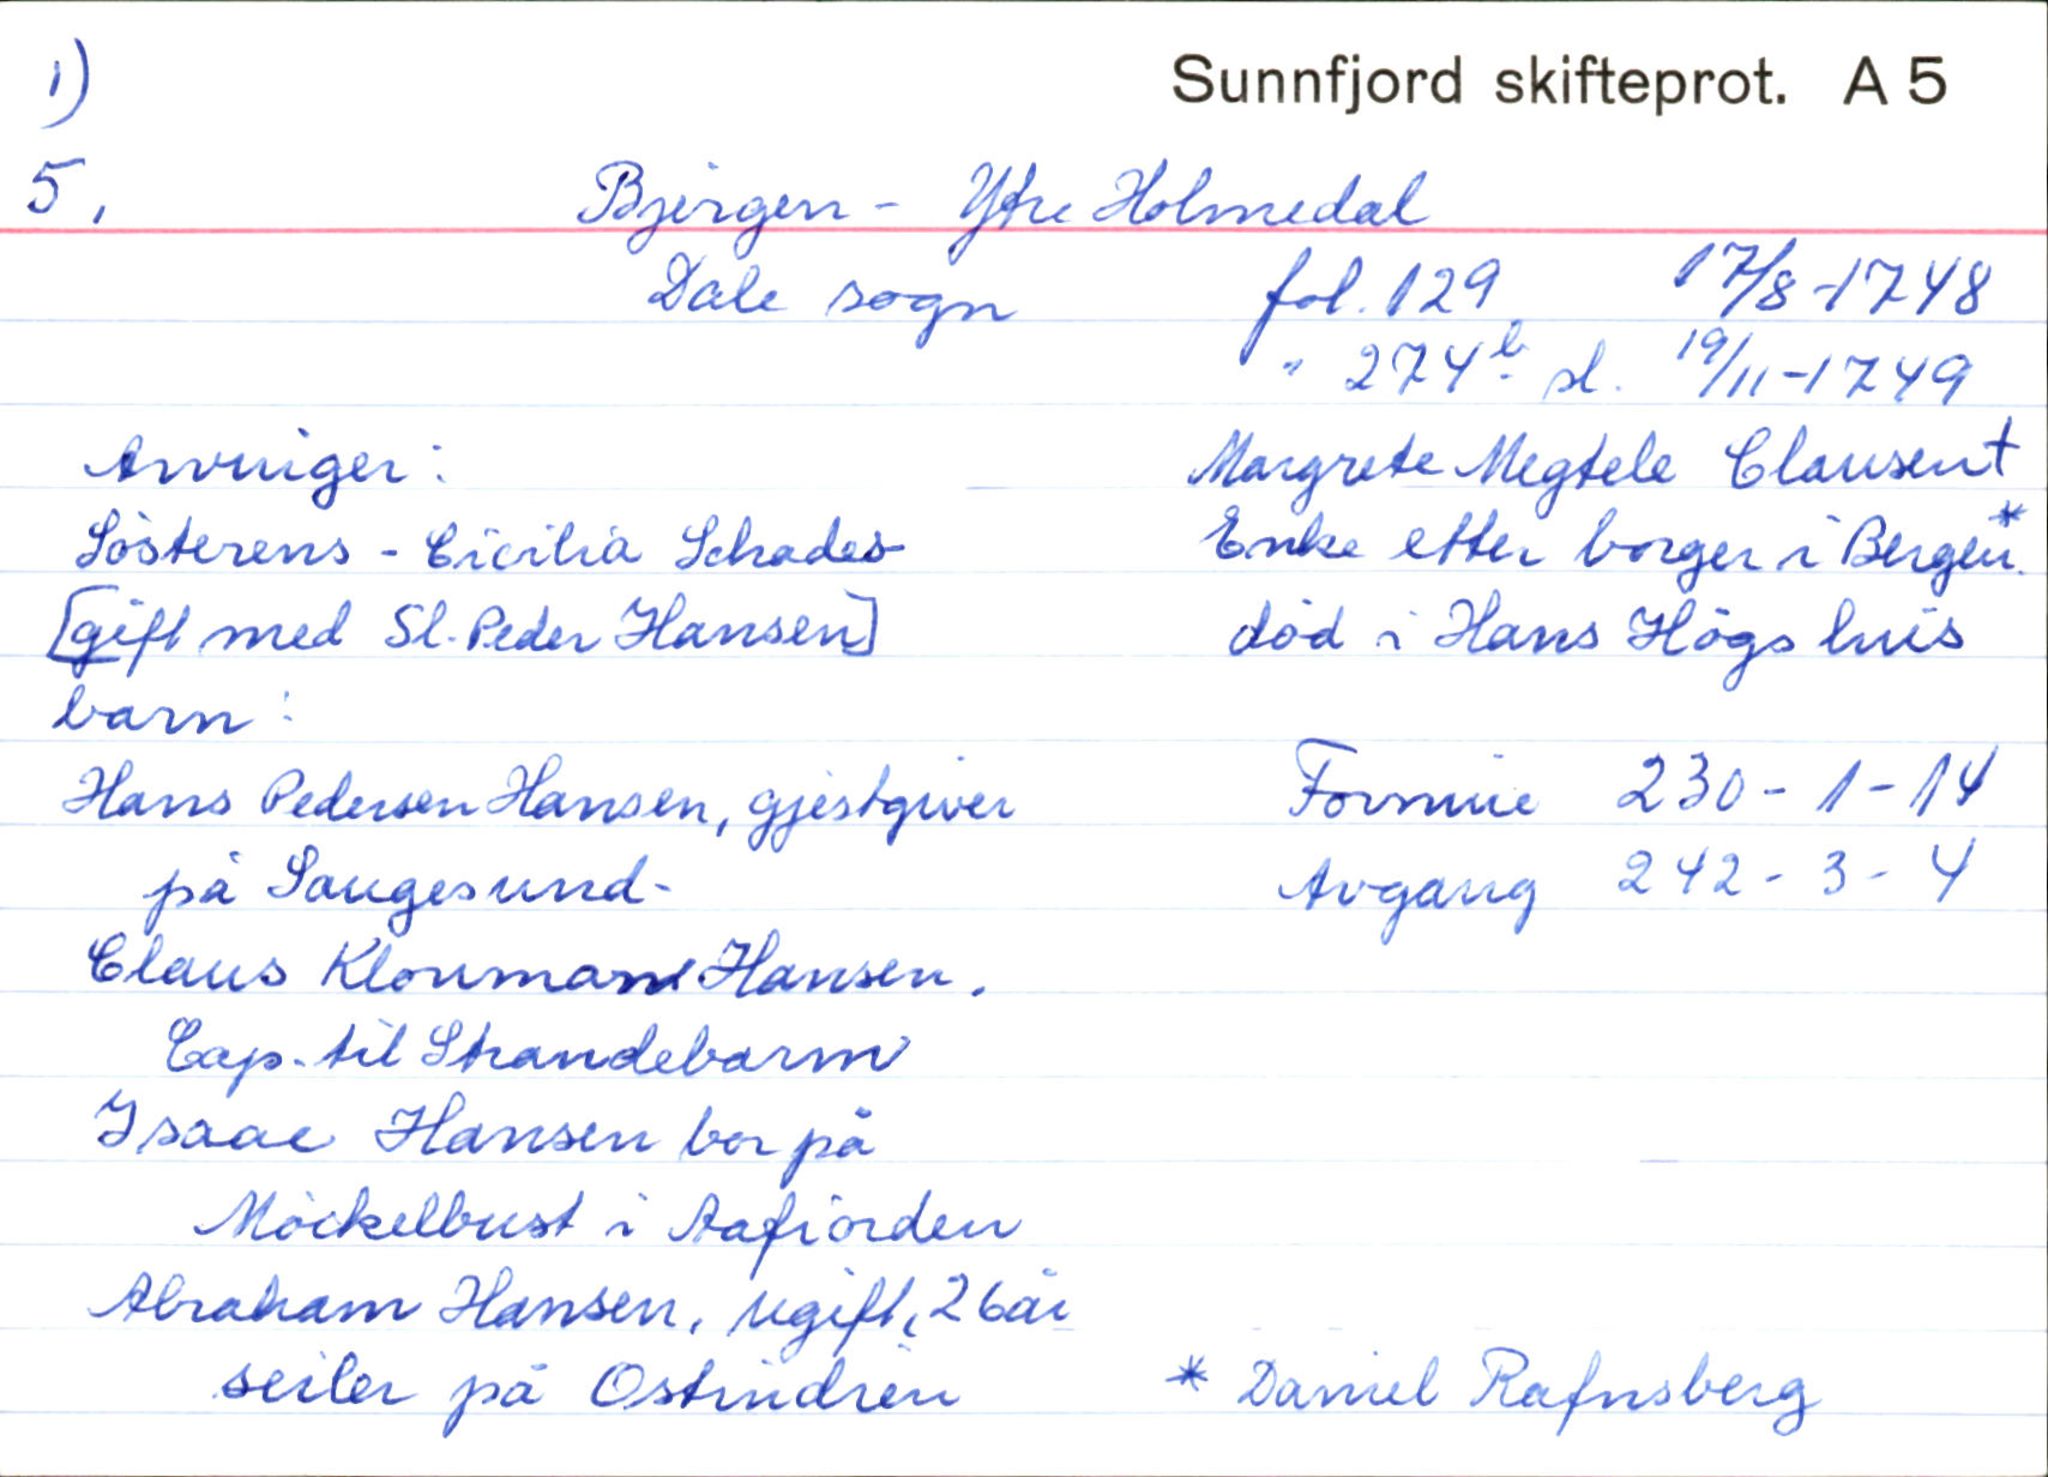 1)
Sunnfjord skifteprot. A 5
5.
Bjergen - Ytre Holmedal
Dale sogn
fol. 129 17/8-1748
" 274b. sl. 19/11-1749
Arvinger:
Sösterens - Cicilia Schades
[gift med Sl. Peder Hansen]
barn:
Hans Pedersen Hansen, gjestgiver
på Saugesund-
Claus Kloumann Hansen.
Cap. til Strandebarm
Isaac Hansen bor på
Möckelbust i Aafiorden
Abraham Hansen, ugift, 26 år
seiler på Ostindien
Margrete Megtele Clausen †
Enke etter borger i Bergen.*
död i Hans Högs huis
Formue 230 - 1 - 14
Avgang 242 - 3 - 4
* Daniel Rafnsberg